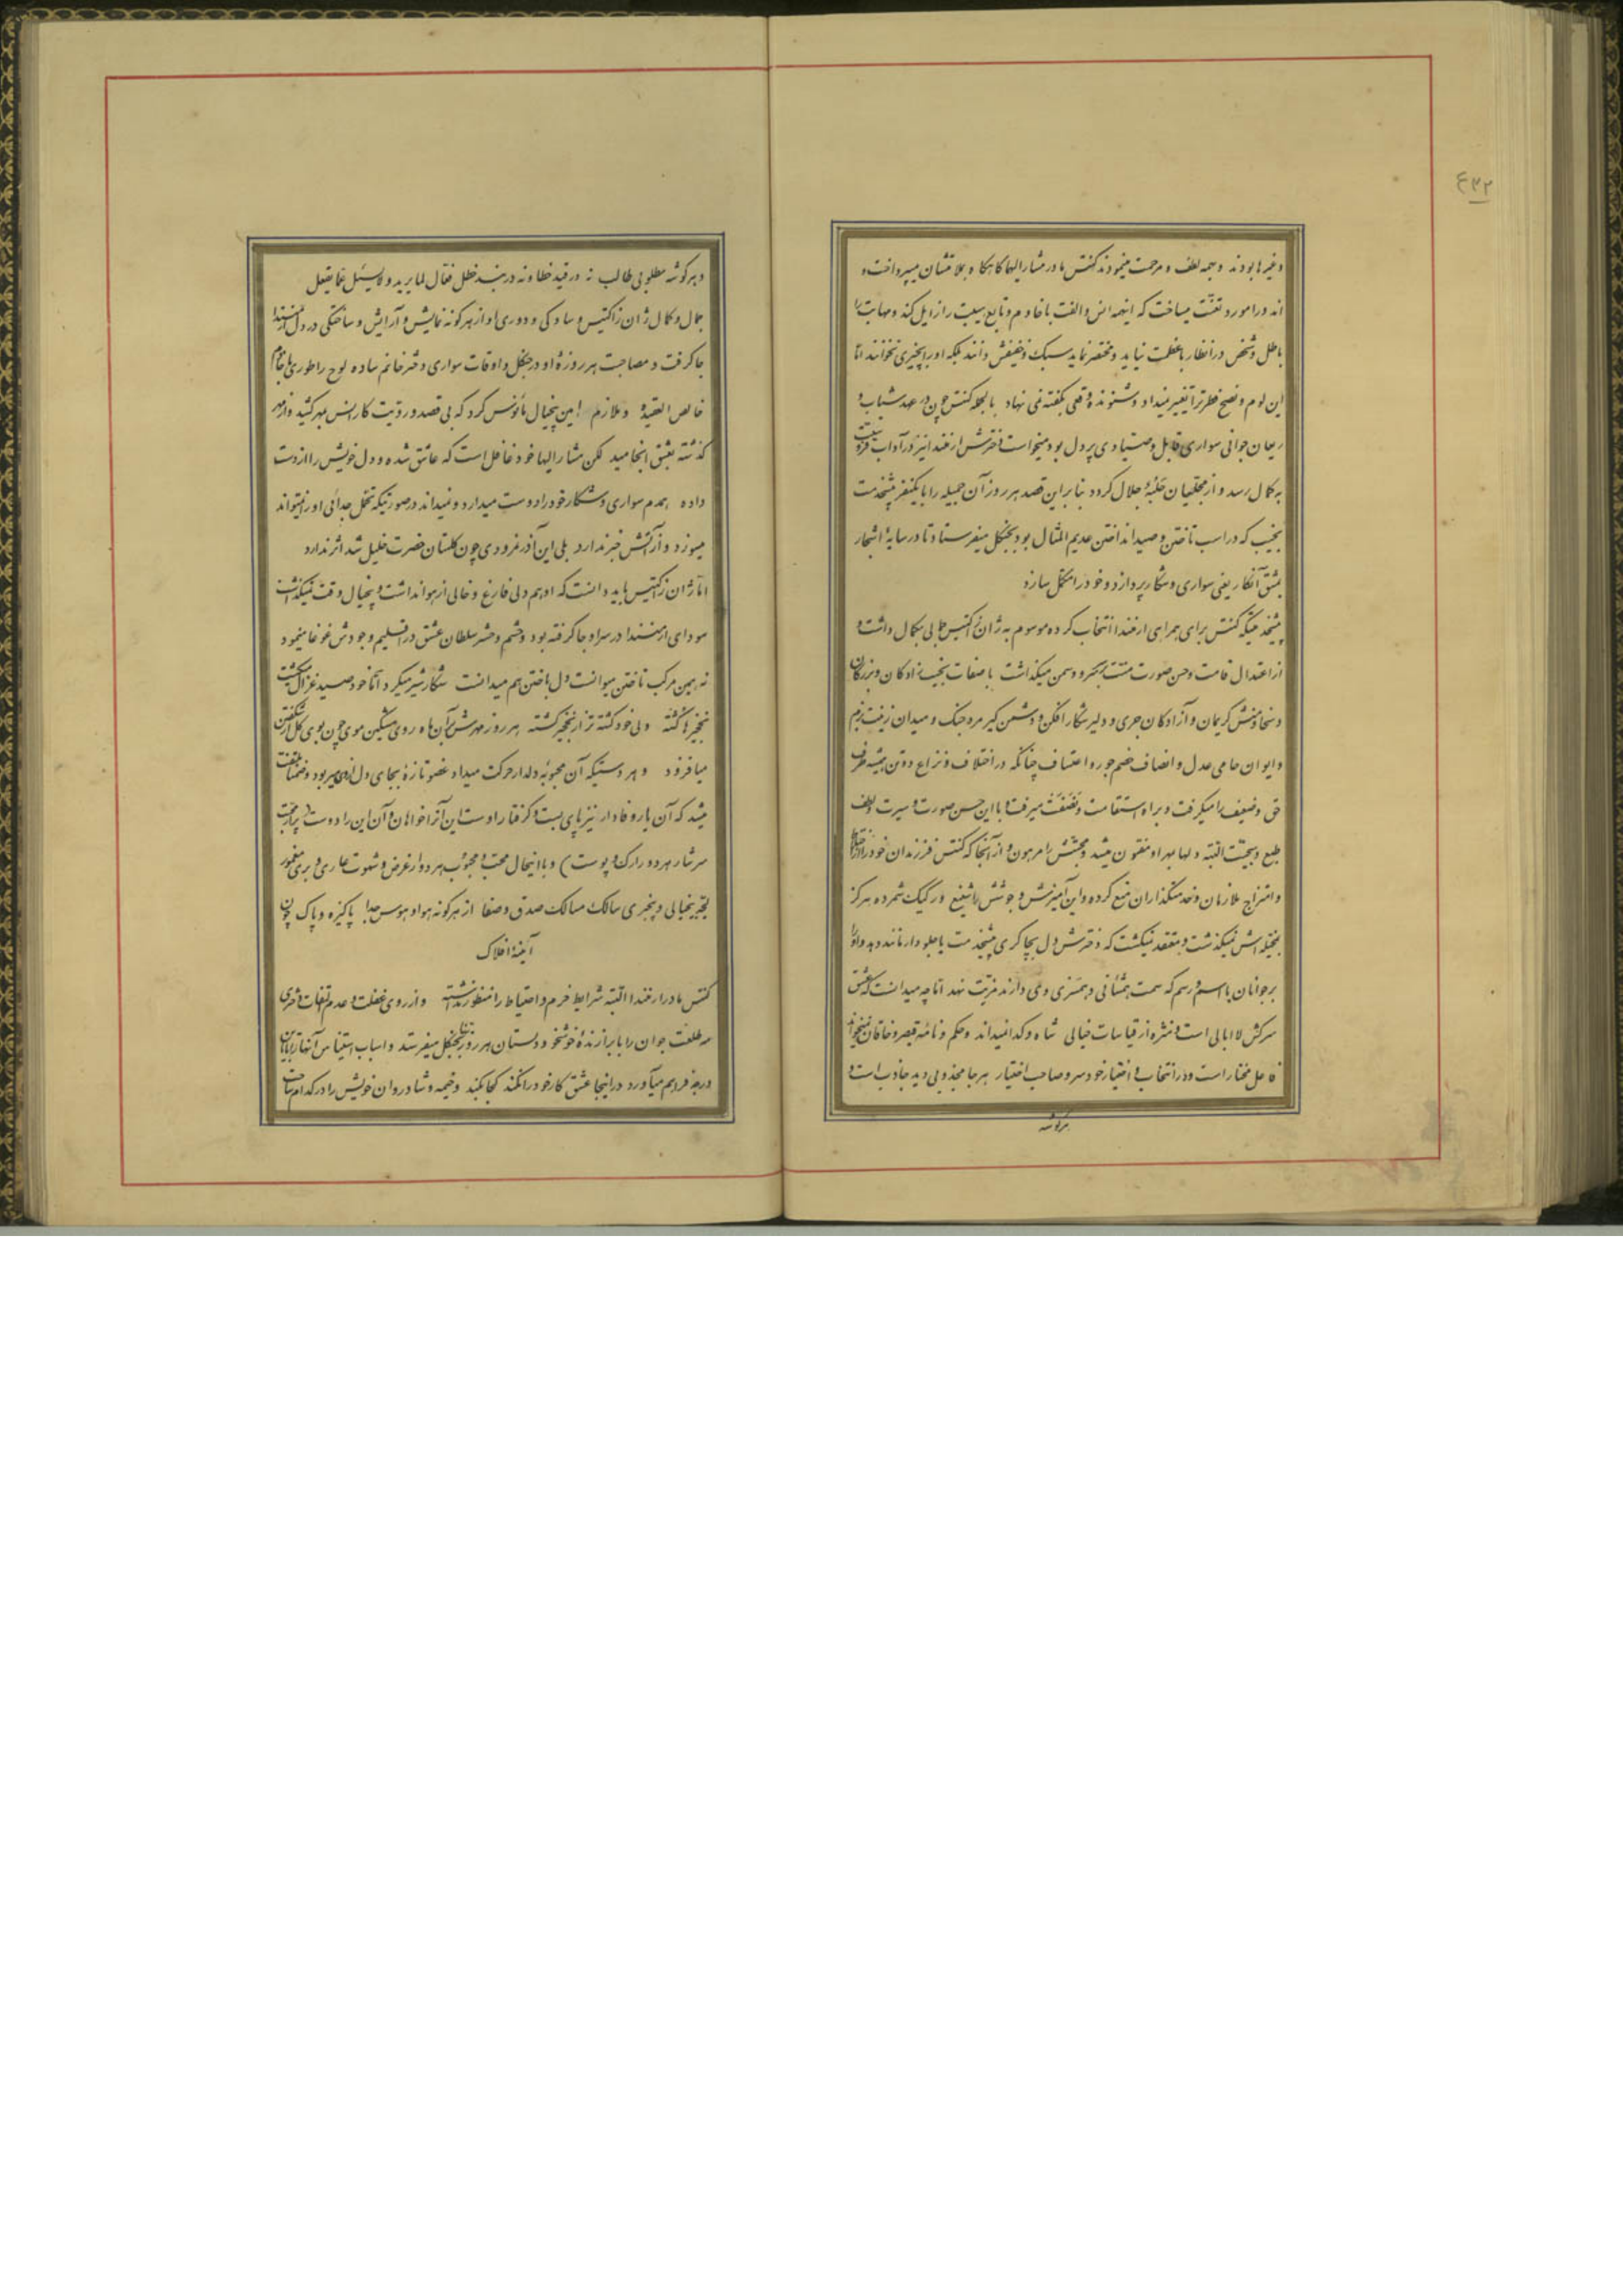 ۴۳۲
و غیرها بودند و همه لطف و مرحمت مینمودند کنتس مادر مشارالیها گاه گاه و بملامتشان میپرداخت و
او را مورد تعنت میساخت که اینهمه انس و الفت با خادم و تابع هیبت را زایل کند و مهابت را
باطل و شخص در انظار با عظمت نیاید و محتقر نماید سبک و خفیفش دانند بلکه او را بچیزی نخوانند اما
این لوم و نصح فطرترا تغییر نمیداد و شنونده وقعی بگفته نمی نهاد بالجمله کنتس چون در عهد شباب و
ریعان جوانی سواری قابل و صیادی پردل بود میخواست دخترش ارمندا نیز در آداب فروسیت
به کمال رسد و از مجلیان حلبهٔ جلال گردد بنا براین قصد هر روز آن جمیله را با یکنفر پیشخدمت
نجیب که در اسب تاختن و صید انداختن عدیم المثال بود بجنگل میفرستاد تا در سایهٔ اشجار
بمشق آنکار یعنی سواری و شکار پردازد و خود را مکمل سازد
پیشخدمتیکه کنتس برای همراهی ارمندا انتخاب کرده موسوم به ژان زاکتیس جمالی بکمال داشت و
از اعتدال قامت و حسن صورت منت بر سرو و سمن میگذاشت با صفات نجیب زادگان و بزرگان
و سخا و منش کریمان و آزادگان جری و دلیر شکار افکن و دشمن گیر مرد جنگ و میدان زینت بزم
و ایوان حامی عدل و انصاف خصم جور و اعتساف چنانکه در اختلاف و نزاع دو تن همیشه طرف
حق و ضعیف را میگرفت و براه استقامت و تعفف میرفت و با این حسن صورت و سیرت و لطف
طبع و سجیت البته دلها بمهر او مفتون میشد و محبتش را مرهون و از آنجا که کنتس فرزندان خود را از اختلاط
و امتزاج ملازمان و خدمتگذاران منع کرده و این آمیزش و جوشش را شنیع و رکیک شمرده هرگز
بمخیله اش نمیگذشت و معتقد نمیگشت که دخترش دل بچاکری پیشخدمت یا جلودار مانند دهد و او را
بر جوانان با اسم و رسم که سمت همشأنی و همسری وی دارند مزیت نهد اما چه میدانست که عشق
سرکش لاابالی است و منزه از قیاسات خیالی شاه و گدا نمیداند و حکم و نامهٔ قیصر و خاقان نمیخواند
فاعل مختار است و در انتخاب و اختیار خودسر و صاحب اختیار هرجا مجذوبی دید جاذب است و
بر گوشه
و بهر گوشه مطلوبی طالب نه در قید خطا و نه در بند خلل فعال لما یرید و لا یسئل عما یفعل
جمال و کمال ژان زاکتیس و سادگی و دوری او از هر گونه نمایش و آرایش و ساختگی در دل ارمندا
جا گرفت و مصاحبت هر روزهٔ او در جنگل و اوقات سواری دختر خانم ساده لوح را طوری با خادم
خالص العقیده و ملازم امین بیخیال مأنوس کرد که بی قصد و رویت کار انس بمهر کشید و از مهر
گذشته بعشق انجامید لکن مشارالیها خود غافل است که عاشق شده و دل خویش را از دست
داده همدم سواری و شکار خود را دوست میدارد و نمیداند در صورتیکه تحمل جدائی او را نمیتواند
میسوزد و از آتش خبر ندارد بلی این آذر نمرودی چون گلستان حضرت خلیل شد اثر ندارد
اما ژان زاکتیس باید دانست که او هم دلی فارغ و خالی از هوا نداشت و بیخیال وقت نمیگذاشت
سودای ارمندا در سر او جا گرفته بود و خشم و حشر سلطان عشق در اقلیم وجودش غوغا مینمود
نه همین مرکب تاختن میتوانست دل باختن هم میدانست شکار شیر میکرد اما خود صید غزال میگشت
نخجیرها گشته ولی خود کشته تر از نخجیر گشته هر روز مهرش بآن ماه روی مشکین موی چون بوی گل از شکفتن
میافزود و هر دستیکه آن محبوبهٔ دلدار حرکت میداد عضو تازهٔ بجای دل از وی میربود و ضمناً ملتفت
میشد که آن یار وفادار نیز پای بست و گرفتار اوست این آنرا خواهان و آن این را دوست از محبت
سرشار هر دو را رگ و پوست) و با اینحال محب و محبوب هر دو از غرض و شهوت عاری و بری مغمور
بحر بیخیالی و بیخبری سالک مسالک صدق و صفا از هر گونه هوا و هوس جدا پاکیزه و پاک چون
آینهٔ افلاک
کنتس مادر ارمندا البته شرایط حزم و احتیاط را منظور نداشته و از روی غفلت و عدم التفات دختری
مه طلعت جوان را با برازندهٔ خوشخو و دلستان هر روز تنها بجنگل میفرستد و اسباب استیناس آنها را بپایان
درجه فراهم میآورد در اینجا عشق کار خود را نکند کجا بکند و خیمه و شادروان خویش را در کدام ساحت